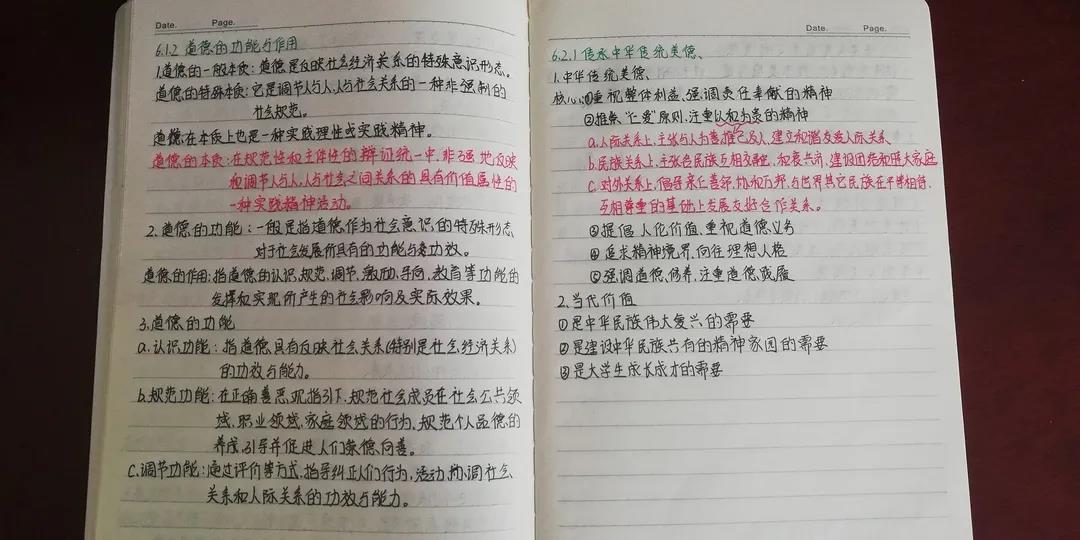 Date. Page.
6.1.2 道德的功能与作用
1.道德的一般本质：道德是反映社会经济关系的特殊意识形态。
道德的特殊本质：它是调节人与人、人与社会关系的一种非强制的
社会规范。
道德在本质上也是一种实践理性或实践精神。
道德的本质：在规范性和主体性的辩证统一中，非强 地反映
和调节人与人、人与社会之间关系的具有价值属性的
一种实践精神活动。
2.道德的功能：一般是指道德作为社会意识的特殊形态
对于社会发展所具有的功能与功效。
道德的作用：指道德的认识、规范、调节、激励、导向、教育等功能的
发挥和实现所产生的社会影响及实际效果。
3.道德的功能
a.认识功能：指道德具有反映社会关系(特别是社会经济关系)
的功效与能力。
b.规范功能：在正确善恶观指引下，规范社会成员在社会公共领
域、职业领域、家庭领域的行为，规范个人品德的
养成，引导并促进人们崇德向善。
c.调节功能：通过评价等方式，指导纠正人们行为、活动，协调社会
关系和人际关系的功效与能力。
Date. Page.
6.2.1 传承中华传统美德、
1.中华传统美德、
核心：①重视整体利益、强调责任奉献的精神
②推崇"仁爱"原则，注重以和为贵的精神
a.人际关系上，主张与人为善推己及人，建立和谐友爱人际关系
b.民族关系上，主张各民族互相交融，和衷共济，建设团结和睦大家庭
c.对外关系上，倡导亲仁善邻，协和万邦，与世界其它民族在平等相待、
互相尊重的基础上发展友好合作关系。
③提倡人伦价值，重视道德义务
④追求精神境界，向往理想人格
⑤强调道德修养，注重道德践履
2.当代价值
①是中华民族伟大复兴的需要
②是建设中华民族共有的精神家园的需要
③是大学生成长成才的需要